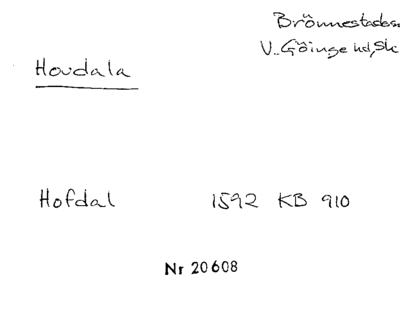 Brönnestads s
V. Göinge hd, Sk
Hovdala
Hofdal 1592 KB 910
Nr 20608